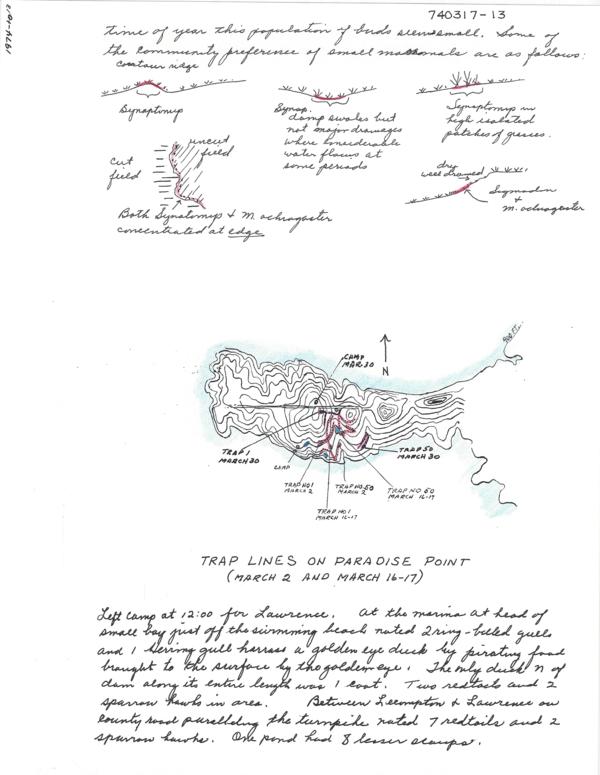 740317-13
1974-1012
time of year this population of birds seems small. Some of
the community preference of small mammals are as follows:
contour ridge
Synaptomys
Synap.
damp swales but
not major drainages
where considerable
water flows at
some periods
Synaptomys in
high isolated
patches of grasses.
Cut
field
uncut
field
Both Synaptomys & M. ochrogaster
concentrated at edge
dry
well drained
Sigmodon
&
M. ochrogaster
N
CAMP
MAR 30
TRAP 1
MARCH 30
CAMP
TRAP NO 1
MARCH 2
TRAP NO 1
MARCH 16-17
TRAP NO. 50
MARCH 2
TRAP NO 50
MARCH 16-17
TRAP 50
MARCH 30
TRAP LINES ON PARADISE POINT
(MARCH 2 AND MARCH 16-17)
Left camp at 12:00 for Lawrence. At the marina at head of
small bay just off the swimming beach noted 2 ring-billed gulls
and 1 Herring gull harrass a goldeneye duck by pirating food
brought to the surface by the goldeneye. The only duck N of
dam along its entire length was 1 coot. Two redtails and 2
sparrow hawks in area. Between Lecompton & Lawrence on
county road paralleling the turnpike noted 7 redtails and 2
sparrow hawks. One pond had 8 lesser scaups.